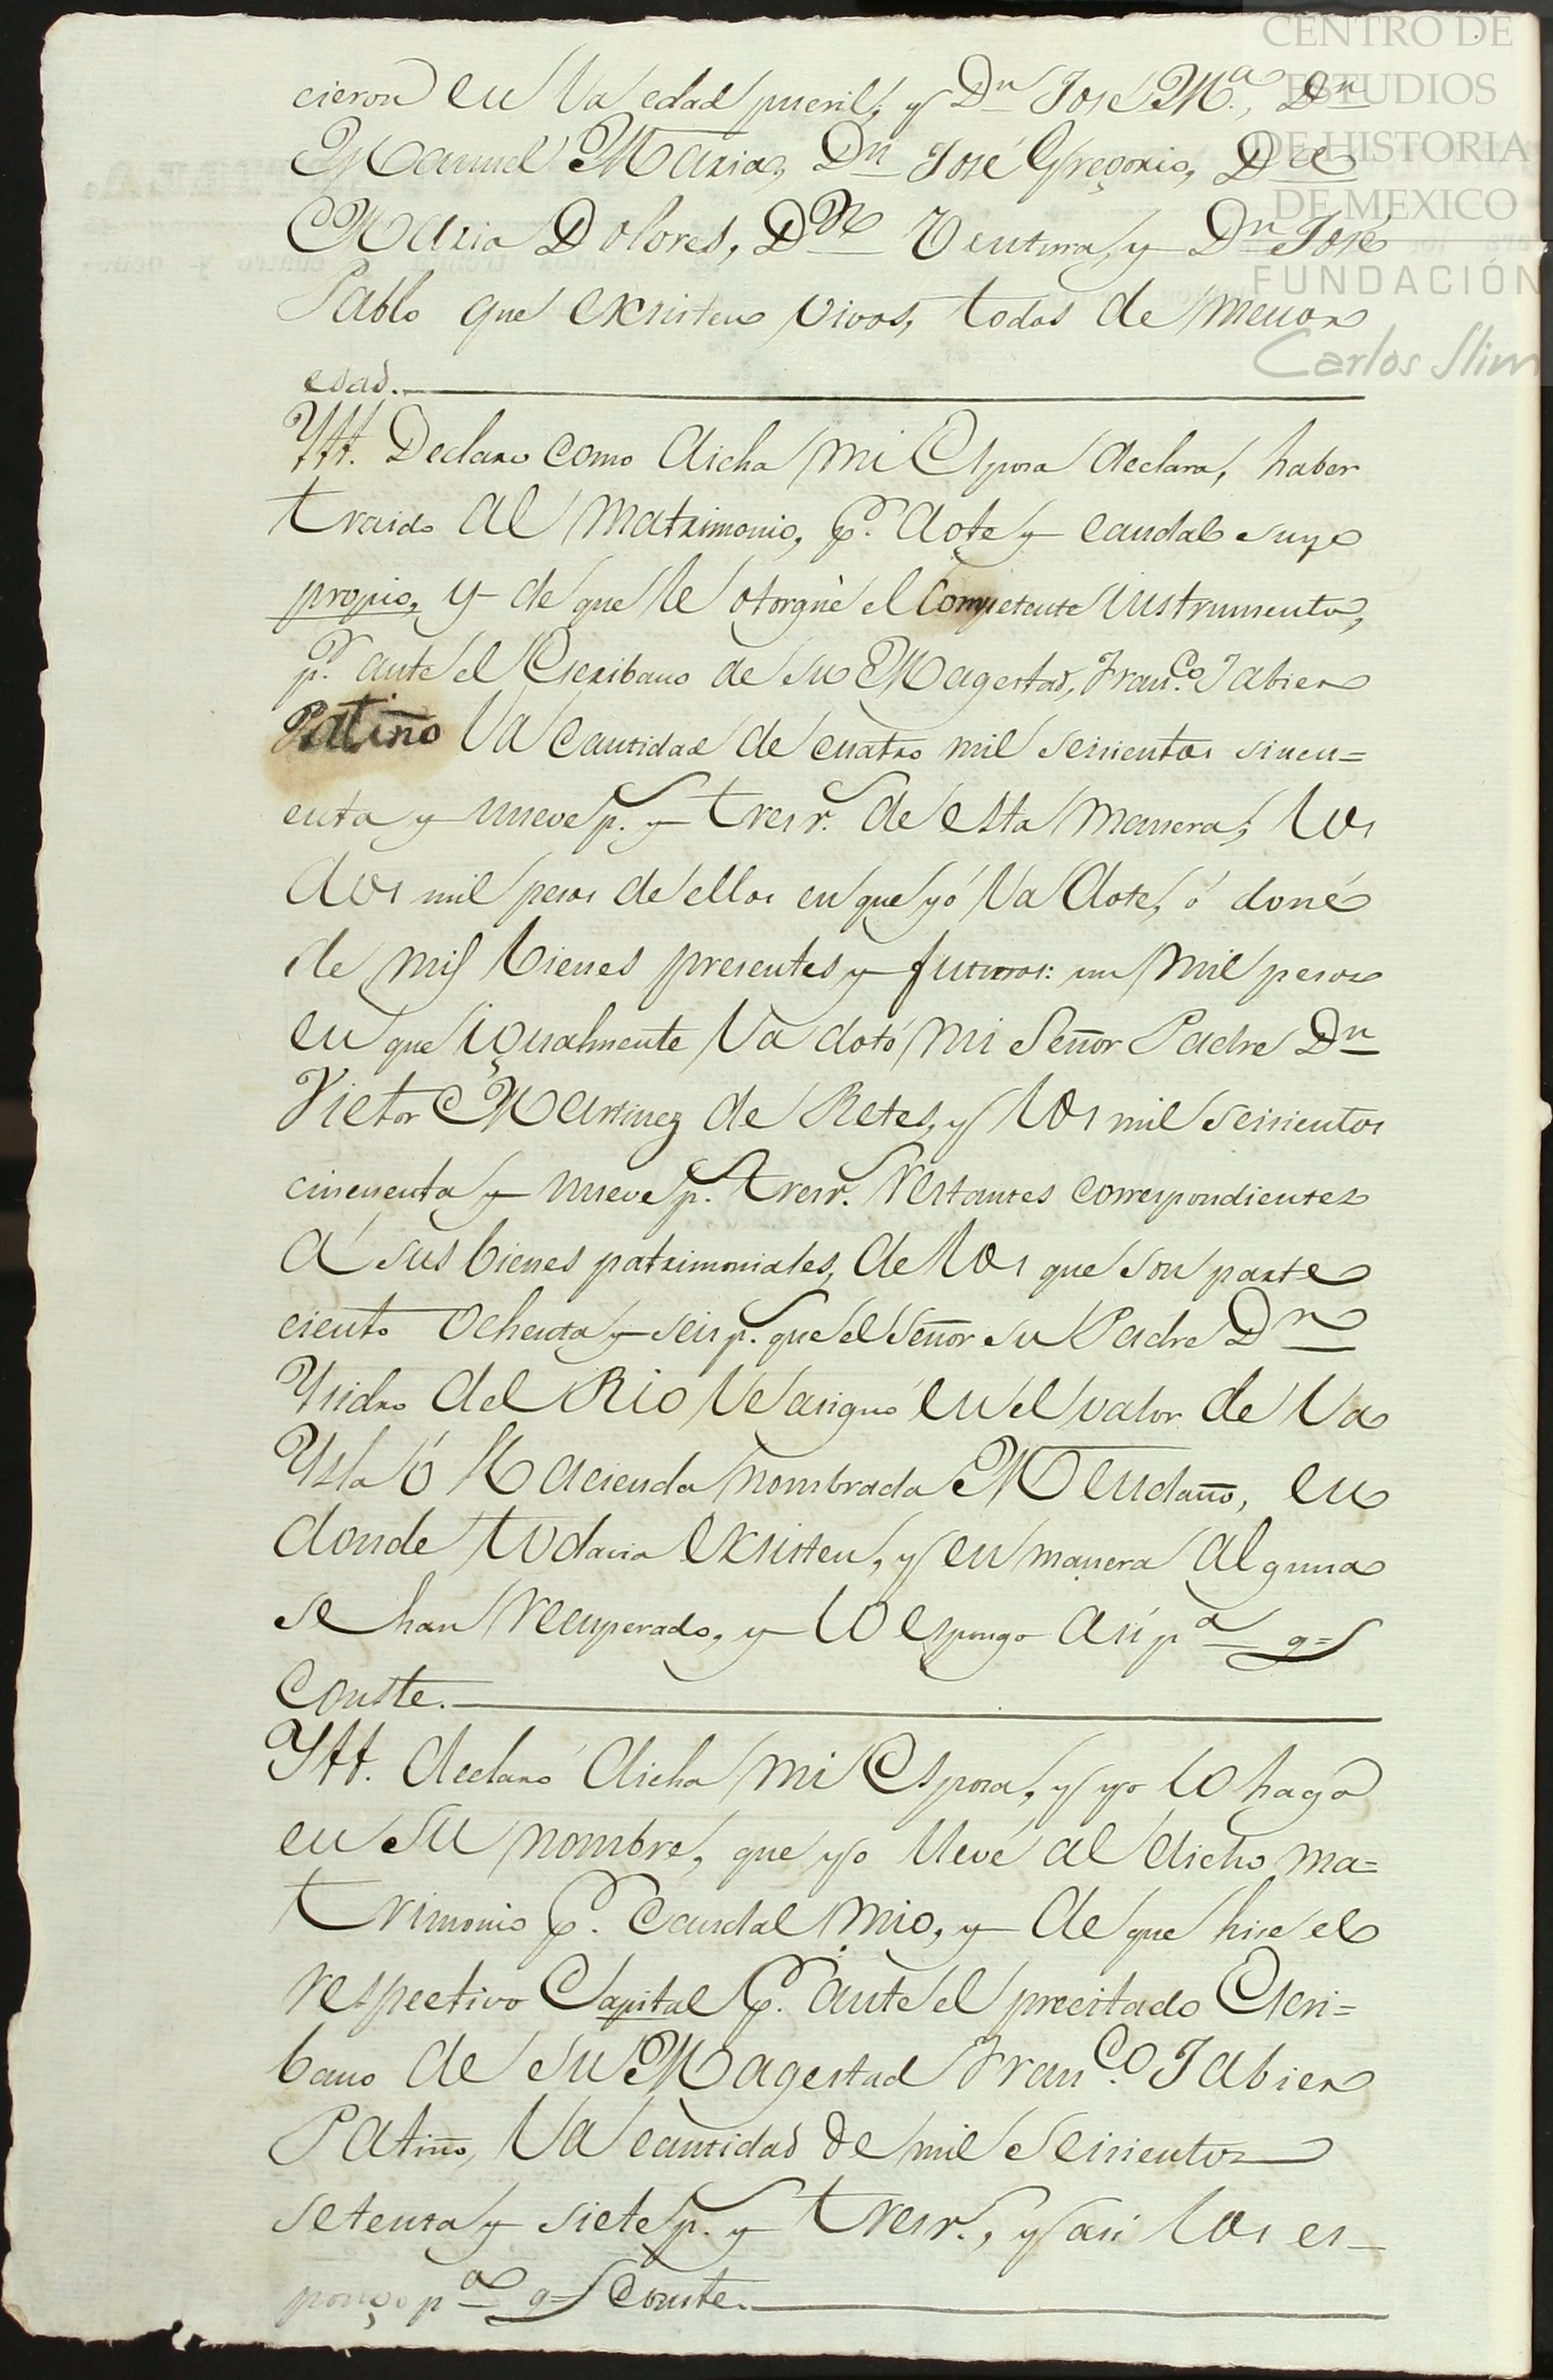 CENTRO DE
ESTUDIOS
DE HISTORIA
DE MEXICO
FUNDACIÓN
Carlos Slim
cieron en la edad pueril, y Dn José Ma., Dn
Manuel Maria, Dn José Gregorio, Da
Maria Dolores, Dn Ventura, y Dn José
Pablo que exsisten vivos, todos de menor
edad.
Ytt. Declaro como dicha mi Esposa declara, haber
traido al matrimonio, p. dote y caudal suyo
propio, y de que le otorgué el competente instrumento,
pr. ante el Escribano de su Magestad, Franco. Jabier
Patiño la cantidad de cuatro mil seisientos sincu=
enta y nueve ps. y tres rs. de esta manera; los
dos mil pesos de ellos en que yó la doté, ó doné
de mis bienes presentes y futuros: un mil pesos
en que igualmente la dotó mi Señor Padre Dn
Victor Martinez de Retes, y los mil seisientos
cincuenta y nueve ps. tres rs. restantes correspondientes
á sus bienes patrimoniales, de los que son parte
ciento ochenta y seis ps. que el Señor su Padre Dn
Ysidro del Rio le asignó en el valor de la
Ysla ó Hacienda nombrada Mendaño, en
donde todavia exsisten, y en manera alguna
se han recuperado, y lo espongo asi pa qe
conste.
Ytt. declaró dicha mi Esposa, y yo lo hago
en su nombre, que yo llevé al dicho ma=
trimonio p. caudal mio, y de que hise el
respectivo Capital p. ante el precitado Escri=
bano de su Magestad Franco. Jabier
Patiño, la cantidad de mil seisientos
setenta y siete ps. y tres rs., y asi los es_
pongo pa qe conste.